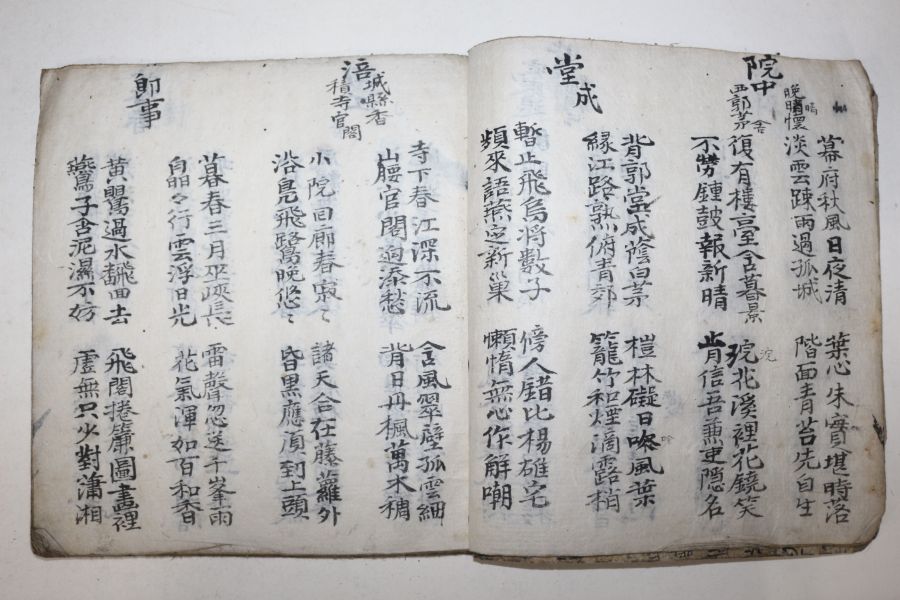 院中
晩晴懷
西郭茅舍
幕府秋風日夜清 葉心朱實堪時落
淡雲踈雨過孤城 階面青苔先自生
復有樓臺含暮景 琓花溪裡花鐃笑
浣
不勞鍾鼓報新晴 肯信吾兼吏隱名
堂成
背郭堂成蔭白茅 榿林礙日吟風葉
吟
緣江路熟俯青郊 籠竹和煙滴露梢
暫止飛烏將數子 傍人錯比楊雄宅
頻來語燕定新巢 懶惰無心作解嘲
涪城縣香
積寺官閣
寺下春江深不流 含風翠壁孤雲細
山腰官閣逈添愁 背日丹楓萬木稠
小院回廊春寂〻 諸天合在藤蘿外
浴鳧飛鷺晚悠〻 昏黑應須到上頭
即事
暮春三月巫峽長 雷聲忽送千峯雨
皛々行雲浮日光 花氣渾如百和香
黃鸎過水飜回去 飛閣捲簾圖畫裡
鷰子含泥濕不妨 虛無只少對瀟湘